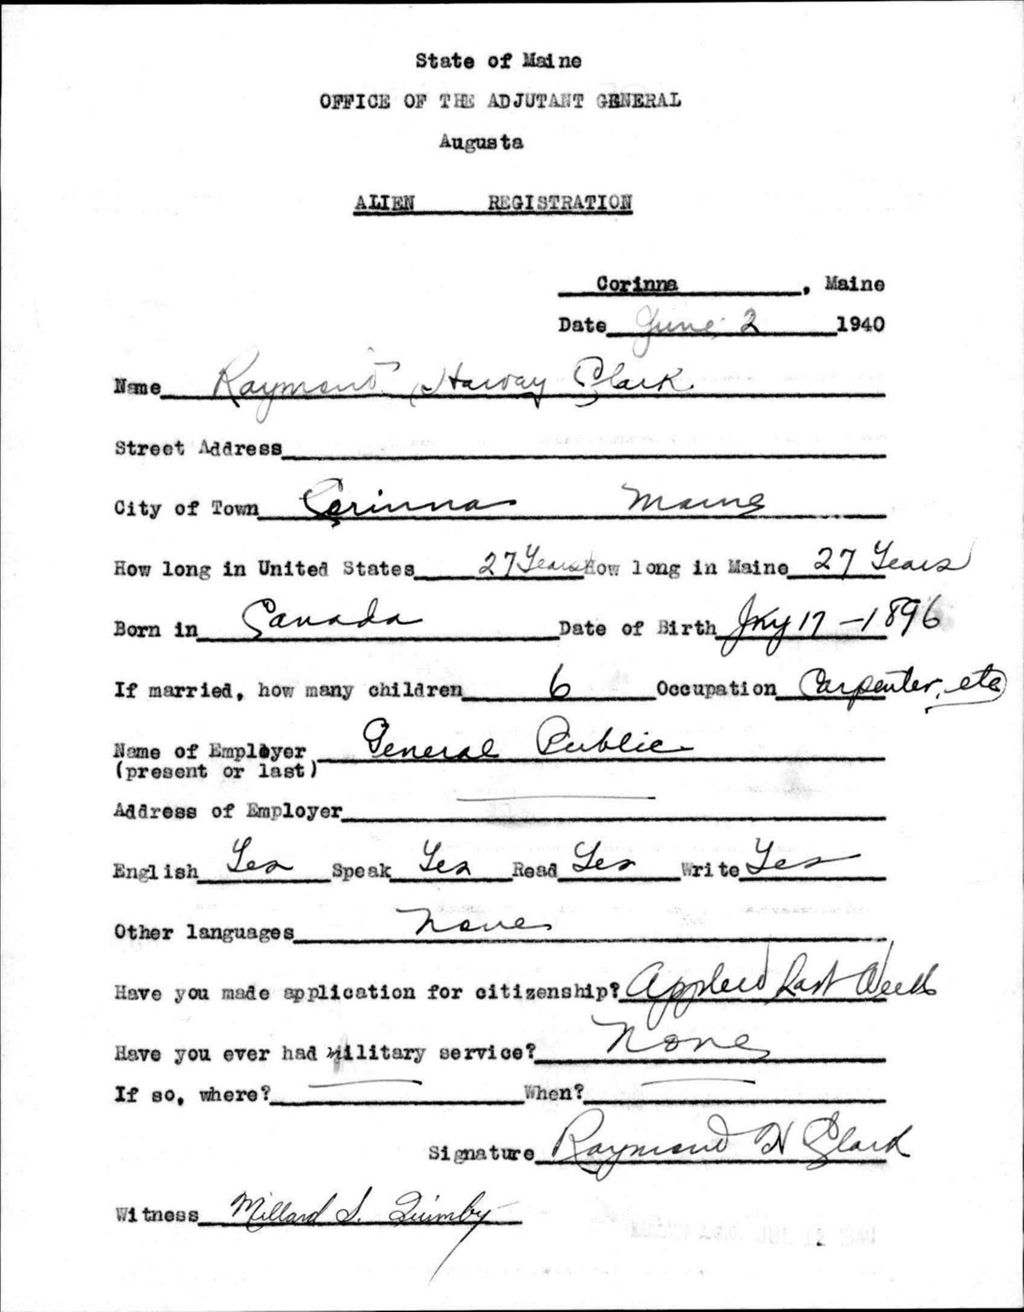 State of Maine
OFFICE OF THE ADJUTANT GENERAL
Augusta
ALIEN REGISTRATION
Corinna, Maine
Date June 2 1940
Name Raymond Harvay Clark
Street Address
City of Town Corinna Maine
How long in United States 27 Years How long in Maine 27 Years
Born in Canada Date of Birth 17-1896
If married, how many children 6 Occupation Carpenter, etc
Name of Employer General Public
(present or last)
Address of Employer
English Yes Speak Yes Read Yes Write Yes
Other languages None
Have you made application for citizenship? Applied Last Week
Have you ever had military service? None
If so, where? When?
Signature Raymond H Clark
Witness Millard S. Quimby